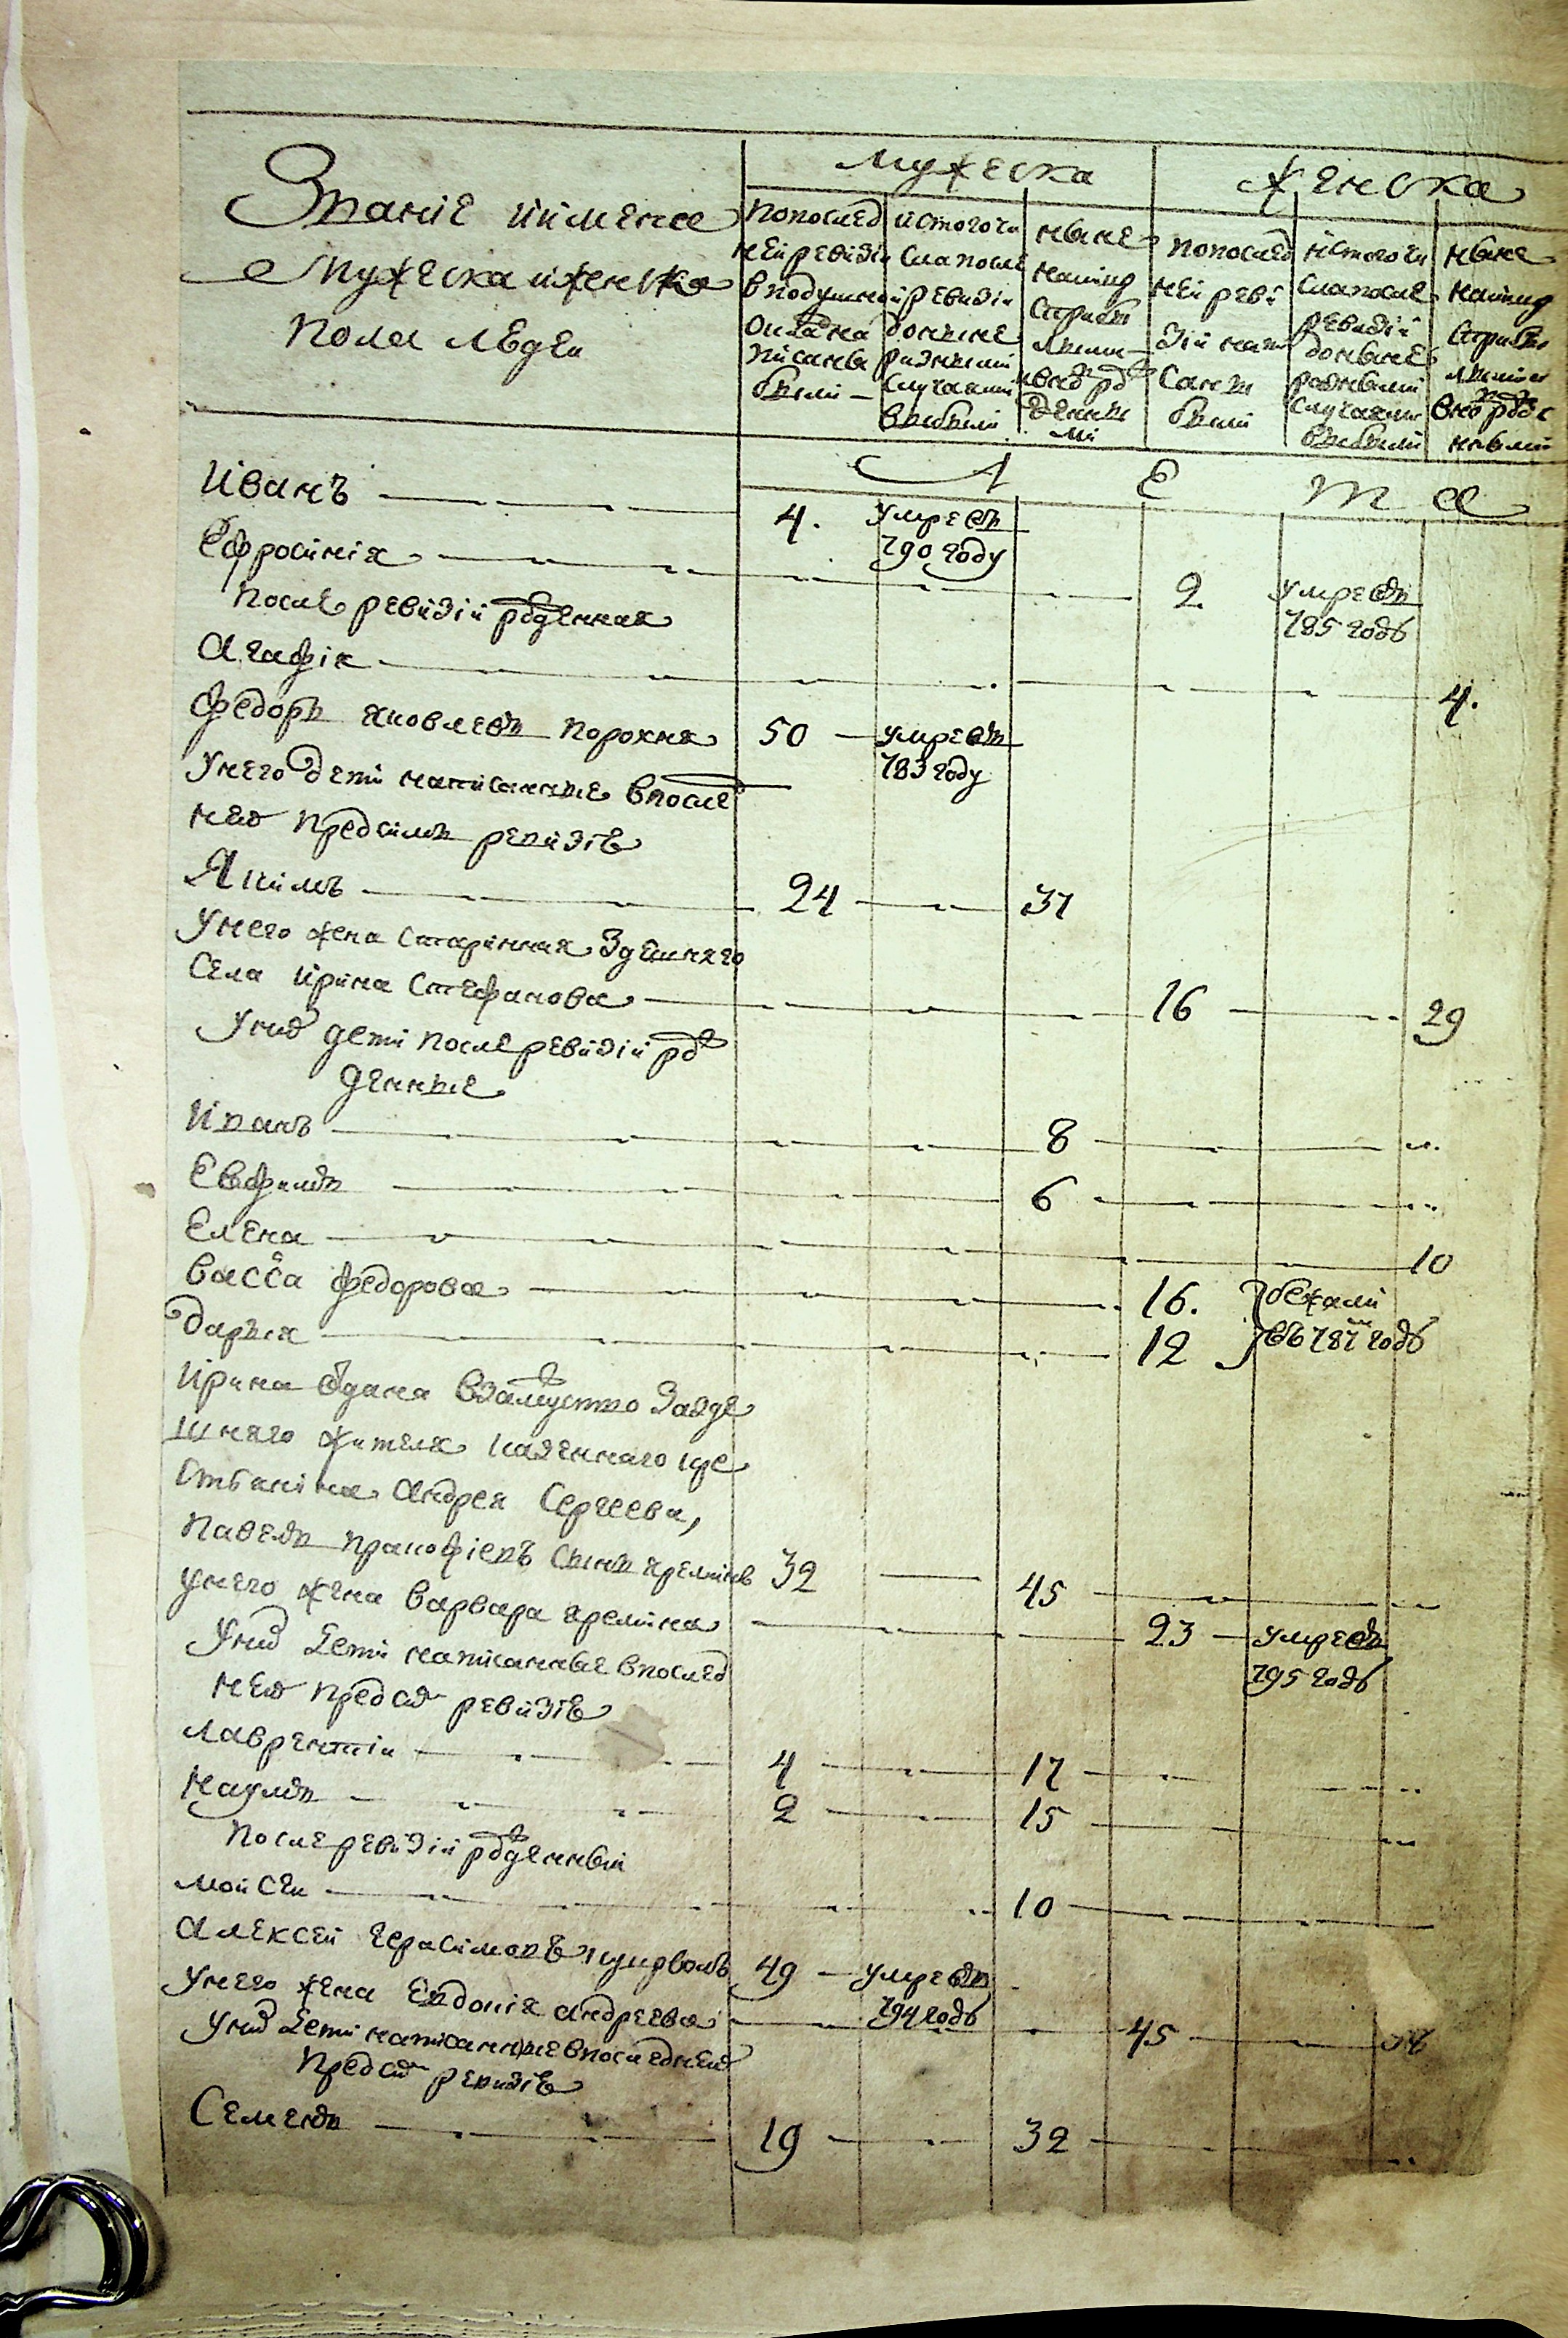 мужеска женска
Званіе иимена
мужеска иженска
пола людеи
попослед
неи ревизіи
вподушной
окладъ на
писаны
были
истогочи
сла после
ревизіи
доныне
разными
случаями
выбыли
ныне
налицо
сприбы
лыми
ивно рож
денны
ми
попослед
неи реви
зіи напи
саны
были
истогочи
сла после
ревизіи
доныне
разными
случаями
выбыли
ныне
налицо
сприбы
лыми и
вно рожде
ными
Л Е Т А
Иванъ 4. умре въ
790 году
Ефросинія 2. умре въ
785 годъ
после ревизіи рожденная
Агафія 4.
Федоръ Яковлевъ Порохня 50 умре въ
783 году
Унего дети написанные впосле
нею предсимъ ревизіѣ
Якимъ 24 37
Унего жена старинная здешняго
села Ирина Стефанова 16 29
Уних дети после ревизіи рож
денные
Иванъ 8
Евфимъ 6
Елена 10
Васса Федорова 16. бежали
Дарья 12 въ 787 годъ
Ирина отдана взамужство зазде
шняго жителя казеннаго
Андрея Сергеева,
Павелъ Пракофіевъ сынъ Яреминъ 32 45
унего жена Варвара Яремина 23 умре въ
795 годъ
Уних дети написанные впослед
нею пред сею ревизіѣ
Лаврентіи 4 17
Наумъ 2 15
После ревизіи рожденныи
Моисеи 10
Алексеи Герасимовъ 49 умре въ
794 годъ
Унего жена Евдокія Андреева 45
Уних дети написанные впоследнею
Пред сею ревизіѣ
Семенъ 19 32